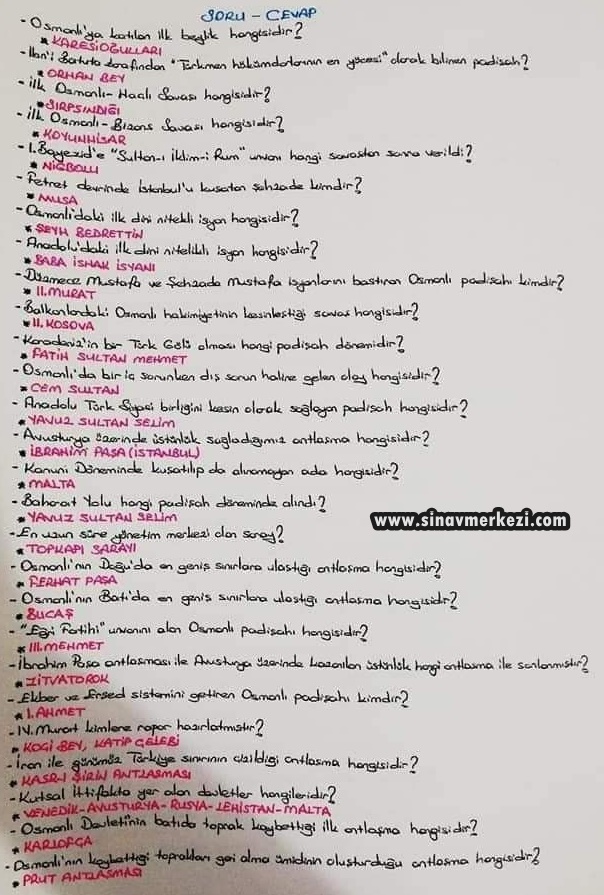 SORU - CEVAP
- Osmanlı'ya katılan ilk beylik hangisidir?
* KARESİOĞULLARI
- İbn'i Batuta tarafından "Türkmen hükümdarlarının en yücesi" olarak bilinen padişah?
* ORHAN BEY
- İlk Osmanlı- Haçlı Savaşı hangisidir?
* SIRPSINDIĞI
- İlk Osmanlı- Bizans Savaşı hangisidir?
* KOYUNHİSAR
- I. Bayezid'e "Sultan-ı İklim-i Rum" unvanı hangi savaştan sonra verildi?
* NİĞBOLU
- Fetret devrinde İstanbul'u kuşatan şehzade kimdir?
* MUSA
- Osmanlı'daki ilk dini nitekli isyan hangisidir?
* ŞEYH BEDRETTİN
- Anadolu'daki ilk dini nitelikli isyan hangisidir?
* BABA İSHAK İSYANI
- Düzmece Mustafa ve Şehzade Mustafa isyanlarını bastıran Osmanlı padişahı kimdir?
* II. MURAT
- Balkanlardaki Osmanlı hakimiyetinin kesinleştiği savaş hangisidir?
* II. KOSOVA
- Karadeniz'in bir Türk Gölü olması hangi padişah dönemidir?
* FATİH SULTAN MEHMET
- Osmanlı'da bir iç sorunken dış sorun haline gelen olay hangisidir?
* CEM SULTAN
- Anadolu Türk Siyasi birliğini kesin olarak sağlayan padişah hangisidir?
* YAVUZ SULTAN SELİM
- Avusturya üzerinde üstünlük sağladığımız antlaşma hangisidir?
* İBRAHİM PAŞA (İSTANBUL)
- Kanuni Döneminde kuşatılıp da alınamayan ada hangisidir?
* MALTA
- Baharat Yolu hangi padişah döneminde alındı?
* YAVUZ SULTAN SELİM
www.sinavmerkezi.com
- En uzun süre yönetim merkezi olan saray?
* TOPKAPI SARAYI
- Osmanlı'nın Doğu'da en geniş sınırlara ulaştığı antlaşma hangisidir?
* FERHAT PAŞA
- Osmanlı'nın Batı'da en geniş sınırlara ulaştığı antlaşma hangisidir?
* BUCAŞ
- "Eğri Fatihi" unvanını alan Osmanlı padişahı hangisidir?
* III. MEHMET
- İbrahim Paşa antlaşması ile Avusturya üzerinde kazanılan üstünlük hangi antlaşma ile sonlanmıştır?
* ZİTVATOROK
- Ekber ve Erşed sistemini getiren Osmanlı padişahı kimdir?
* I. AHMET
- IV. Murat kimlere rapor hazırlatmıştır?
* KOÇİ BEY, KATİP ÇELEBİ
- İran ile günümüz Türkiye sınırının çizildiği antlaşma hangisidir?
* KASR-I ŞİRİN ANTLAŞMASI
- Kutsal İttifakta yer alan devletler hangileridir?
* VENEDİK- AVUSTURYA- RUSYA- LEHİSTAN- MALTA
- Osmanlı Devleti'nin batıda toprak kaybettiği ilk antlaşma hangisidir?
* KARLOFÇA
- Osmanlı'nın kaybettiği toprakları geri alma ümidinin oluşturduğu antlaşma hangisidir?
* PRUT ANTLAŞMASI